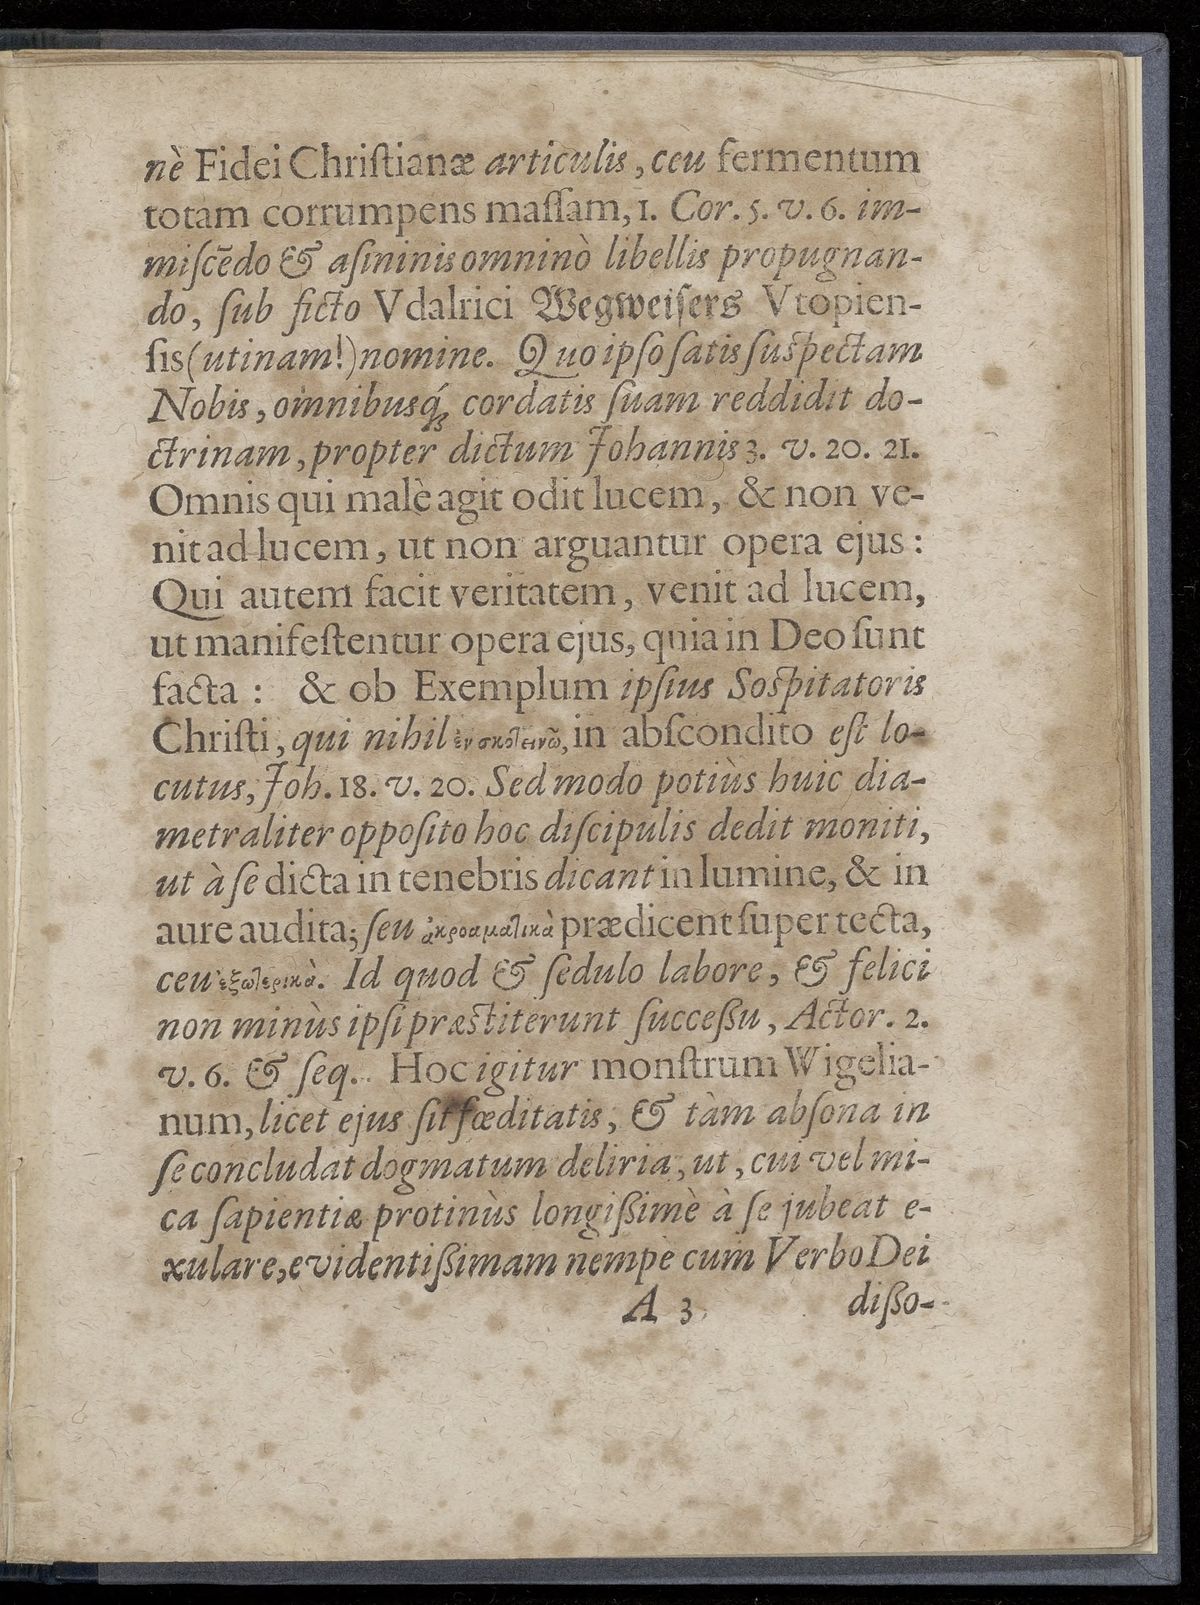 nè Fidei Chriſtianæ articulis, ceu fermentum
totam corrumpens maſſam, 1. Cor. 5. v. 6. im-
miſcēdo & aſininis omninò libellis propugnan-
do, ſub ficto Vdalrici Wegweiſers Vtopien-
ſis (utinam!) nomine. Quo ipſo ſatis ſuſpectam
Nobis, omnibusq́; cordatis ſuam reddidit do-
ctrinam, propter dictum Johannis 3. v. 20. 21.
Omnis qui malè agit odit lucem, & non ve-
nit ad lucem, ut non arguantur opera ejus:
Qui autem facit veritatem, venit ad lucem,
ut manifeſtentur opera ejus, quia in Deo ſunt
facta: & ob Exemplum ipſius Soſpitatoris
Chriſti, qui nihil ἐν σκοτεινῶ, in abſcondito eſt lo-
cutus, Joh. 18. v. 20. Sed modo potiùs huic dia-
metraliter oppoſito hoc diſcipulis dedit moniti,
ut à ſe dicta in tenebris dicant in lumine, & in
aure audita; ſeu ἀκροαματικὰ prædicent ſuper tecta,
ceu ἐξωτερικὰ. Id quod & ſedulo labore, & felici
non minùs ipſi præſtiterunt ſucceßu, Actor. 2.
v. 6. & ſeq. Hoc igitur monſtrum Wigelia-
num, licet ejus ſit fœditatis, & tàm abſona in
ſe concludat dogmatum deliria, ut, cui vel mi-
ca ſapientiæ protinùs longißimè à ſe jubeat e-
xulare, evidentißimam nempe cum Verbo Dei
A 3 dißo-